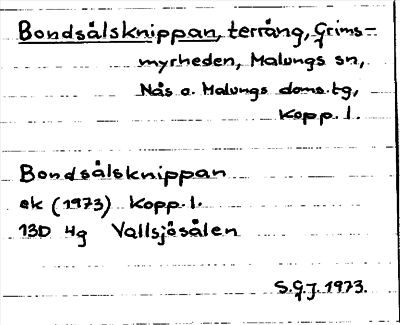 Bondsålsknippan, terräng, Grims-
myrheden, Malungs sn,
Nås o. Malungs doms. tg,
Kopp. l.
Bondsålsknippan
ek (1973) Kopp. l.
13D Hg Vallsjösålen
S.G.J. 1973.